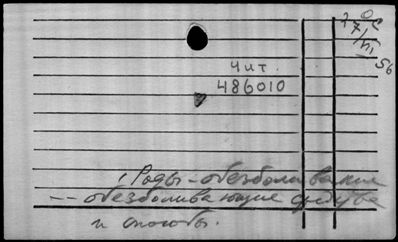 27/VI 56
Чит.
486010
Роды - обезболивание
-- обезболивающие средства
и способы.